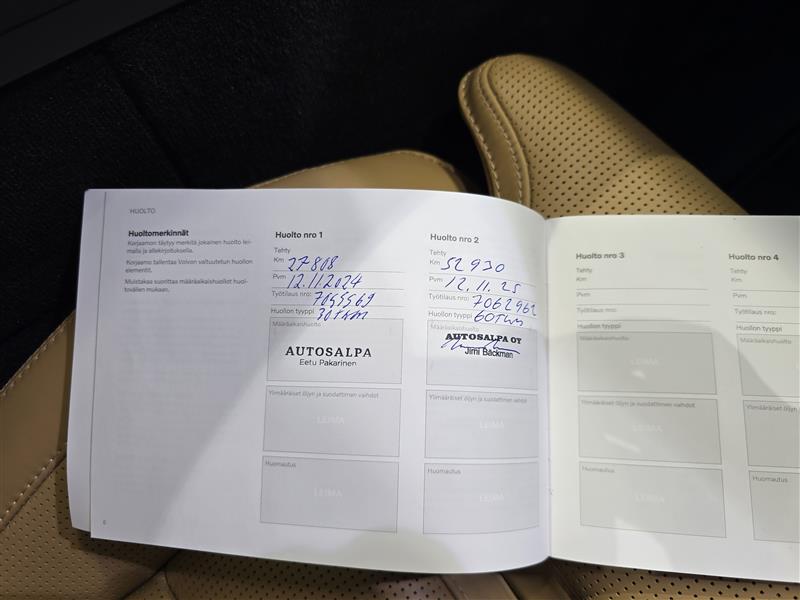 HUOLTO
Huoltomerkinnät
Korjaamon täytyy merkitä jokainen huolto lei-
malla ja allekirjoituksella.
Korjaamo tallentaa Volvon valtuutetun huollon
elementit.
Muistakaa suorittaa määräaikaishuollot huol-
tovälien mukaan.
6
Huolto nro 1
Tehty
Km 27808
Pvm 12.11.2024
Työtilaus nro: 7055569
Huollon tyyppi 30Tkm
Määräaikaishuolto
AUTOSALPA
Eetu Pakarinen
Ylimääräiset öljyn ja suodattimen vaihdot
LEIMA
Huomautus
LEIMA
Huolto nro 2
Tehty
Km 52930
Pvm 12.11.25
Työtilaus nro: 7062962
Huollon tyyppi 60Tkm
Määräaikaishuolto
AUTOSALPA OY
Jimi Bäckman
Ylimääräiset öljyn ja suodattimen vaihdot
LEIMA
Huomautus
LEIMA
Huolto nro 3
Tehty
Km
Pvm
Työtilaus nro:
Huollon tyyppi
Määräaikaishuolto
LEIMA
Ylimääräiset öljyn ja suodattimen vaihdot
LEIMA
Huomautus
LEIMA
Huolto nro 4
Tehty
Km
Pvm
Työtilaus nro:
Huollon tyyppi
Määräaikaishuolto
Ylimääräiset öljyn
Huomautus